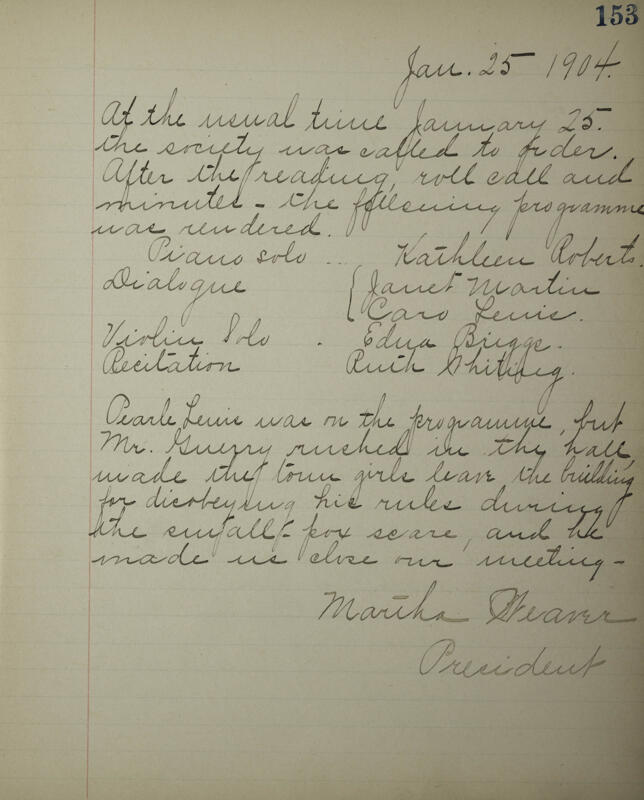 153
Jan. 25 1904.
At the usual time January 25.
the society was called to order.
After the reading, roll call and
minutes - the following programme
was rendered.
Piano solo ... Kathleen Roberts.
Dialogue { Janet Martin
Caro Lewis.
Violin Solo . Edna Briggs.
Recitation Ruth Whiting.
Pearle Lewis was on the programme, but
Mr. Guerry rushed in the hall,
made the town girls leave the building
for disobeying his rules during
the small-pox scare, and he
made us close our meeting-
Martha Weaver
President